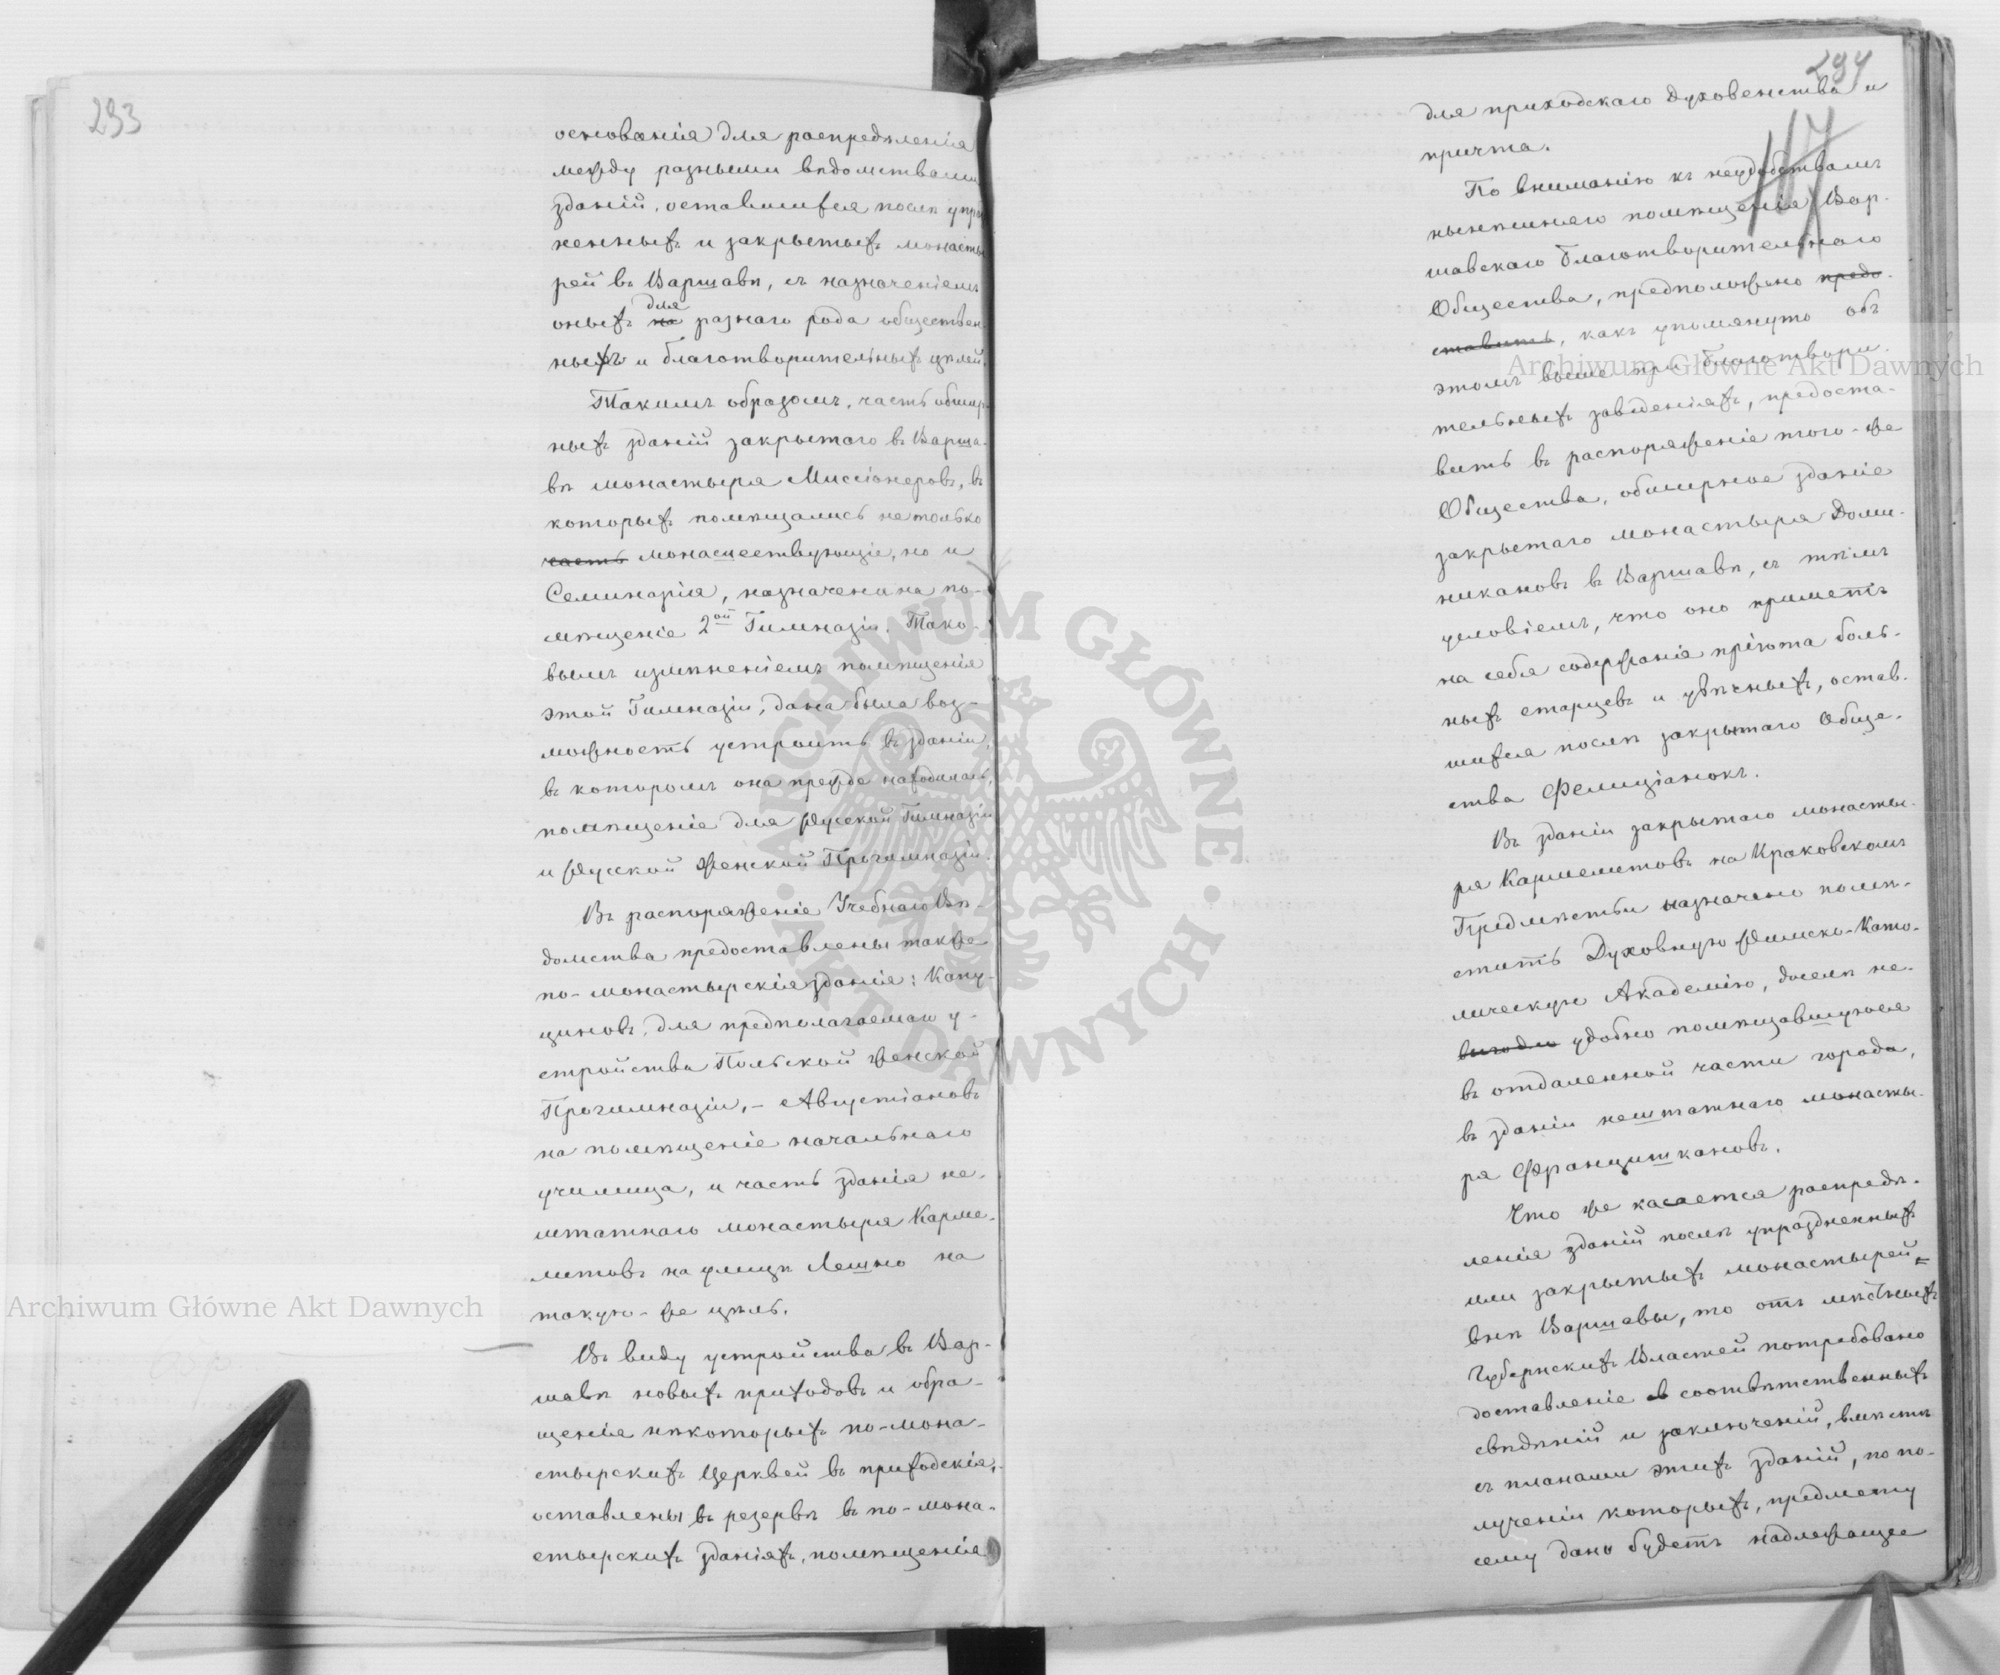 293
основанія для распредѣленія
между разными вѣдомствами
зданій, оставшихся послѣ упра
ненныхъ и закрытыхъ монасты
рей въ Варшавѣ, съ назначеніемъ
для
оныхъ на разнаго рода обществен
ныхъ и благотворительныхъ цѣлей.
Такимъ образомъ, часть обшир
ныхъ зданій закрытаго въ Варша-
вѣ монастыря Миссіонеровъ, въ
которыхъ помѣщались не только
часть монашествующіе, но и
Семинарія, назначена на по-
мѣщеніе 2ой Гимназіи. Тако-
вымъ измѣненіемъ помѣщенія
этой Гимназіи, дана была воз-
можность устроить въ зданіи,
въ которомъ она прежде находилась,
помѣщеніе для Русской Гимназіи
и Русской Женской Прогимназіи.
Въ распоряженіе Учебнаго Вѣ-
домства предоставлены также
по-монастырскія зданія: Капу-
циновъ, для предполагаемаго у-
стройства Польской Женской
Прогимназіи, - Августіановъ
на помѣщеніе начальнаго
училища, и часть зданія не-
штатнаго монастыря Карме-
литовъ на улицѣ Лешно на
такую-же цѣль.
Въ виду устройства въ Вар-
шавѣ новыхъ приходовъ и обра-
щенія нѣкоторыхъ по-мона-
стырскихъ Церквей въ приходскія,
оставлены въ резервѣ въ по-мона-
стырскихъ зданіяхъ, помѣщенія
294
117
для приходскаго Духовенства и
причта.
По вниманію къ неудобствамъ
нынѣшняго помѣщенія Вар-
шавскаго Благотворительнаго
Общества, предположено предо-
ставить, какъ упомянуто объ
этомъ выше при благотвори-
тельныхъ заведеніяхъ, предоста-
вить въ распоряженіе того-же
Общества, обширное зданіе
закрытаго монастыря Доми-
никановъ въ Варшавѣ, съ тѣмъ
условіемъ, что оно приметъ
на себя содержаніе пріюта боль-
ныхъ старцевъ и увѣчныхъ, остав-
шихся послѣ закрытаго Обще-
ства Фелиціанокъ.
Въ зданіи закрытаго монасты-
ря Кармелитовъ на Краковскомъ
Предмѣстьи назначено помѣ-
стить Духовную Римско-Като-
лическую Академію, доселѣ не-
выгодно удобно помѣщавшуюся
въ отдаленной части города,
въ зданіи нештатнаго монасты-
ря Францишкановъ.
Что же касается распредѣ-
ленія зданій послѣ упраздненныхъ
или закрытыхъ монастырей
внѣ Варшавы, то отъ мѣстныхъ
Губернскихъ Властей потребовано
доставленіе соотвѣтственныхъ
свѣдѣній и заключеній, вмѣстѣ
съ планами этихъ зданій, по по-
лученіи которыхъ, предмету
сему дано будетъ надлежащее
Archiwum Główne Akt Dawnych
Archiwum Główne Akt Dawnych
ARCHIWUM GŁÓWNE · AKT DAWNYCH ·